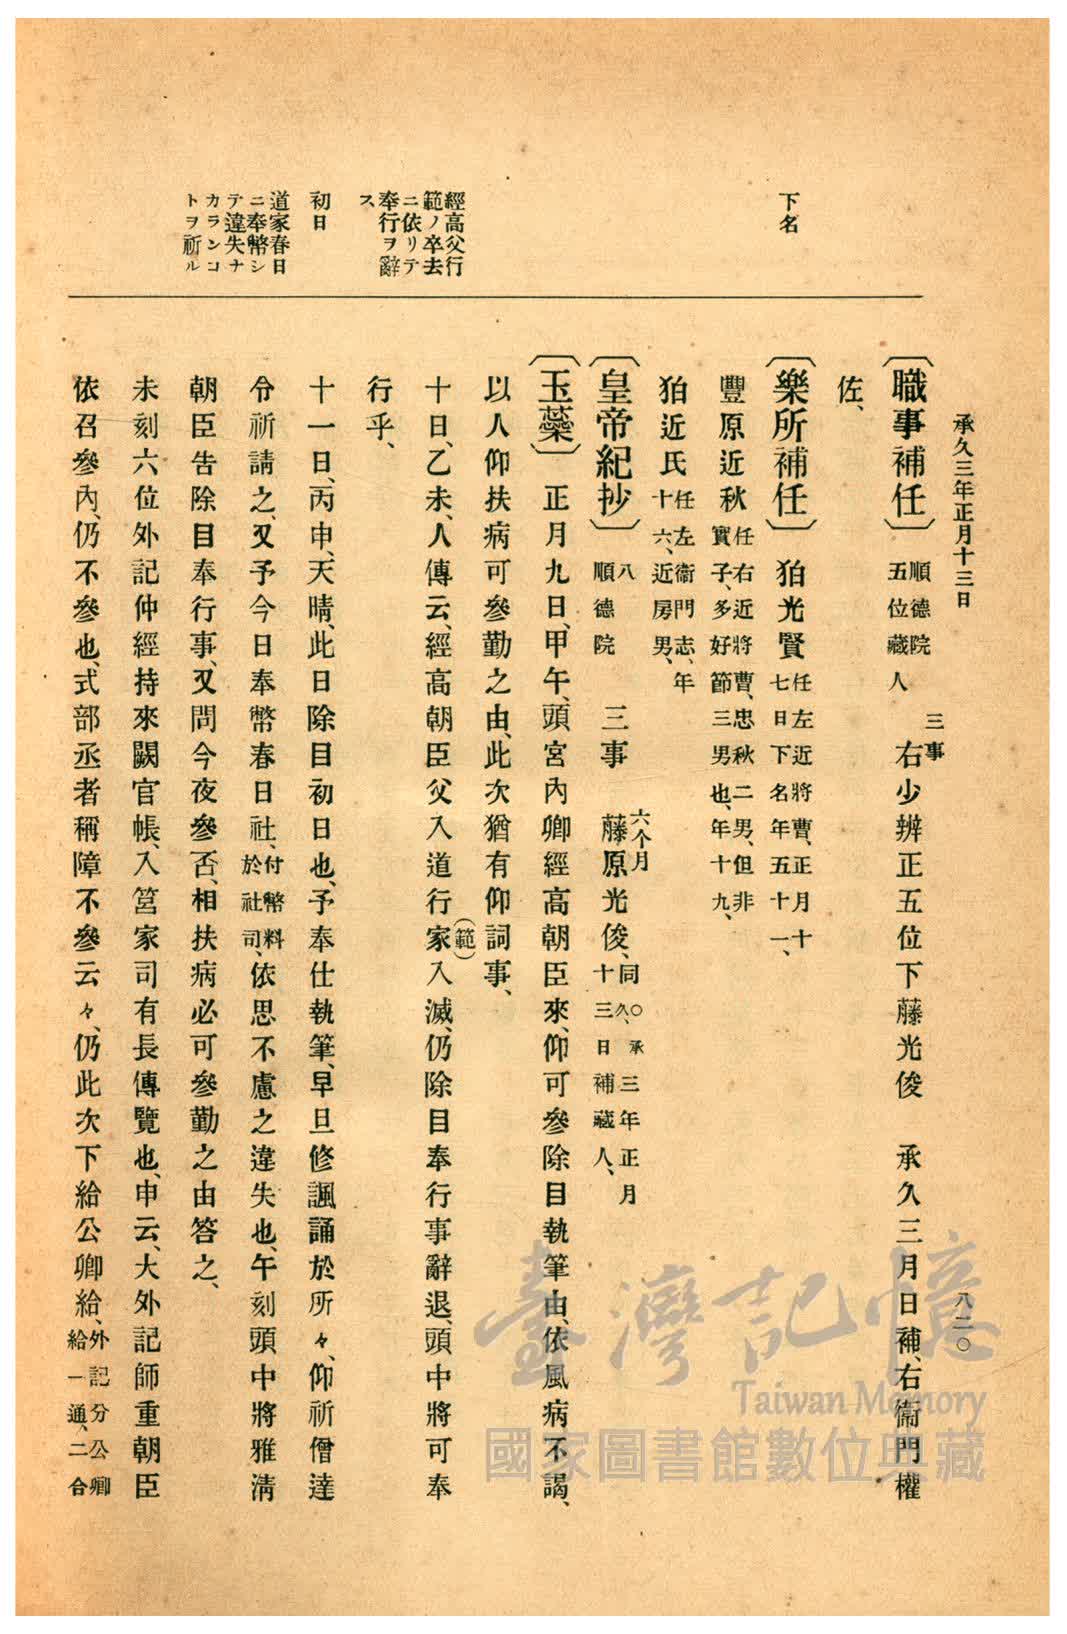 承久三年正月十三日
八二〇
下名
經高父行
範ノ卒去
ニ依リテ
奉行ヲ辭
ス
初日
道家春日
ニ奉幣シ
テ違失ナ
カランコ
トヲ祈ル
〔職事補任〕順德院
五位藏人
三事
右少辨正五位下藤光俊　承久三月日補、右衞門權
佐、
〔樂所補任〕狛光賢任左近將曹、正月十
七日下名年五十一、
豐原近秋任右近將曹、忠秋二男、但非
實子、多好節三男也、年十九、
狛近氏任左衞門志、年
十六、近房男、
〔皇帝紀抄〕八
順德院
三事
六个月
藤原光俊、同〇承久、三年正月
十三日補藏人、
〔玉蘂〕正月九日、甲午、頭宮內卿經高朝臣來、仰可參除目執筆由、依風病不謁、
以人仰扶病可參勤之由、此次猶有仰詞事、
十日、乙未、人傳云、經高朝臣父入道行家(範)入滅、仍除目奉行事辭退、頭中將可奉
行乎、
十一日、丙申、天晴、此日除目初日也、予奉仕執筆、早旦修諷誦於所々、仰祈僧達
令祈請之、又予今日奉幣春日社、付幣料
於社司、依思不慮之違失也、午刻頭中將雅淸
朝臣吿除目奉行事、又問今夜參否、相扶病必可參勤之由答之、
未刻六位外記仲經持來闕官帳、入筥家司有長傳覽也、申云、大外記師重朝臣
依召參內、仍不參也、式部丞者稱障不參云々、仍此次下給公卿給、外記分公卿
給一通、二合
臺灣記憶
Taiwan Memory
國家圖書館數位典藏